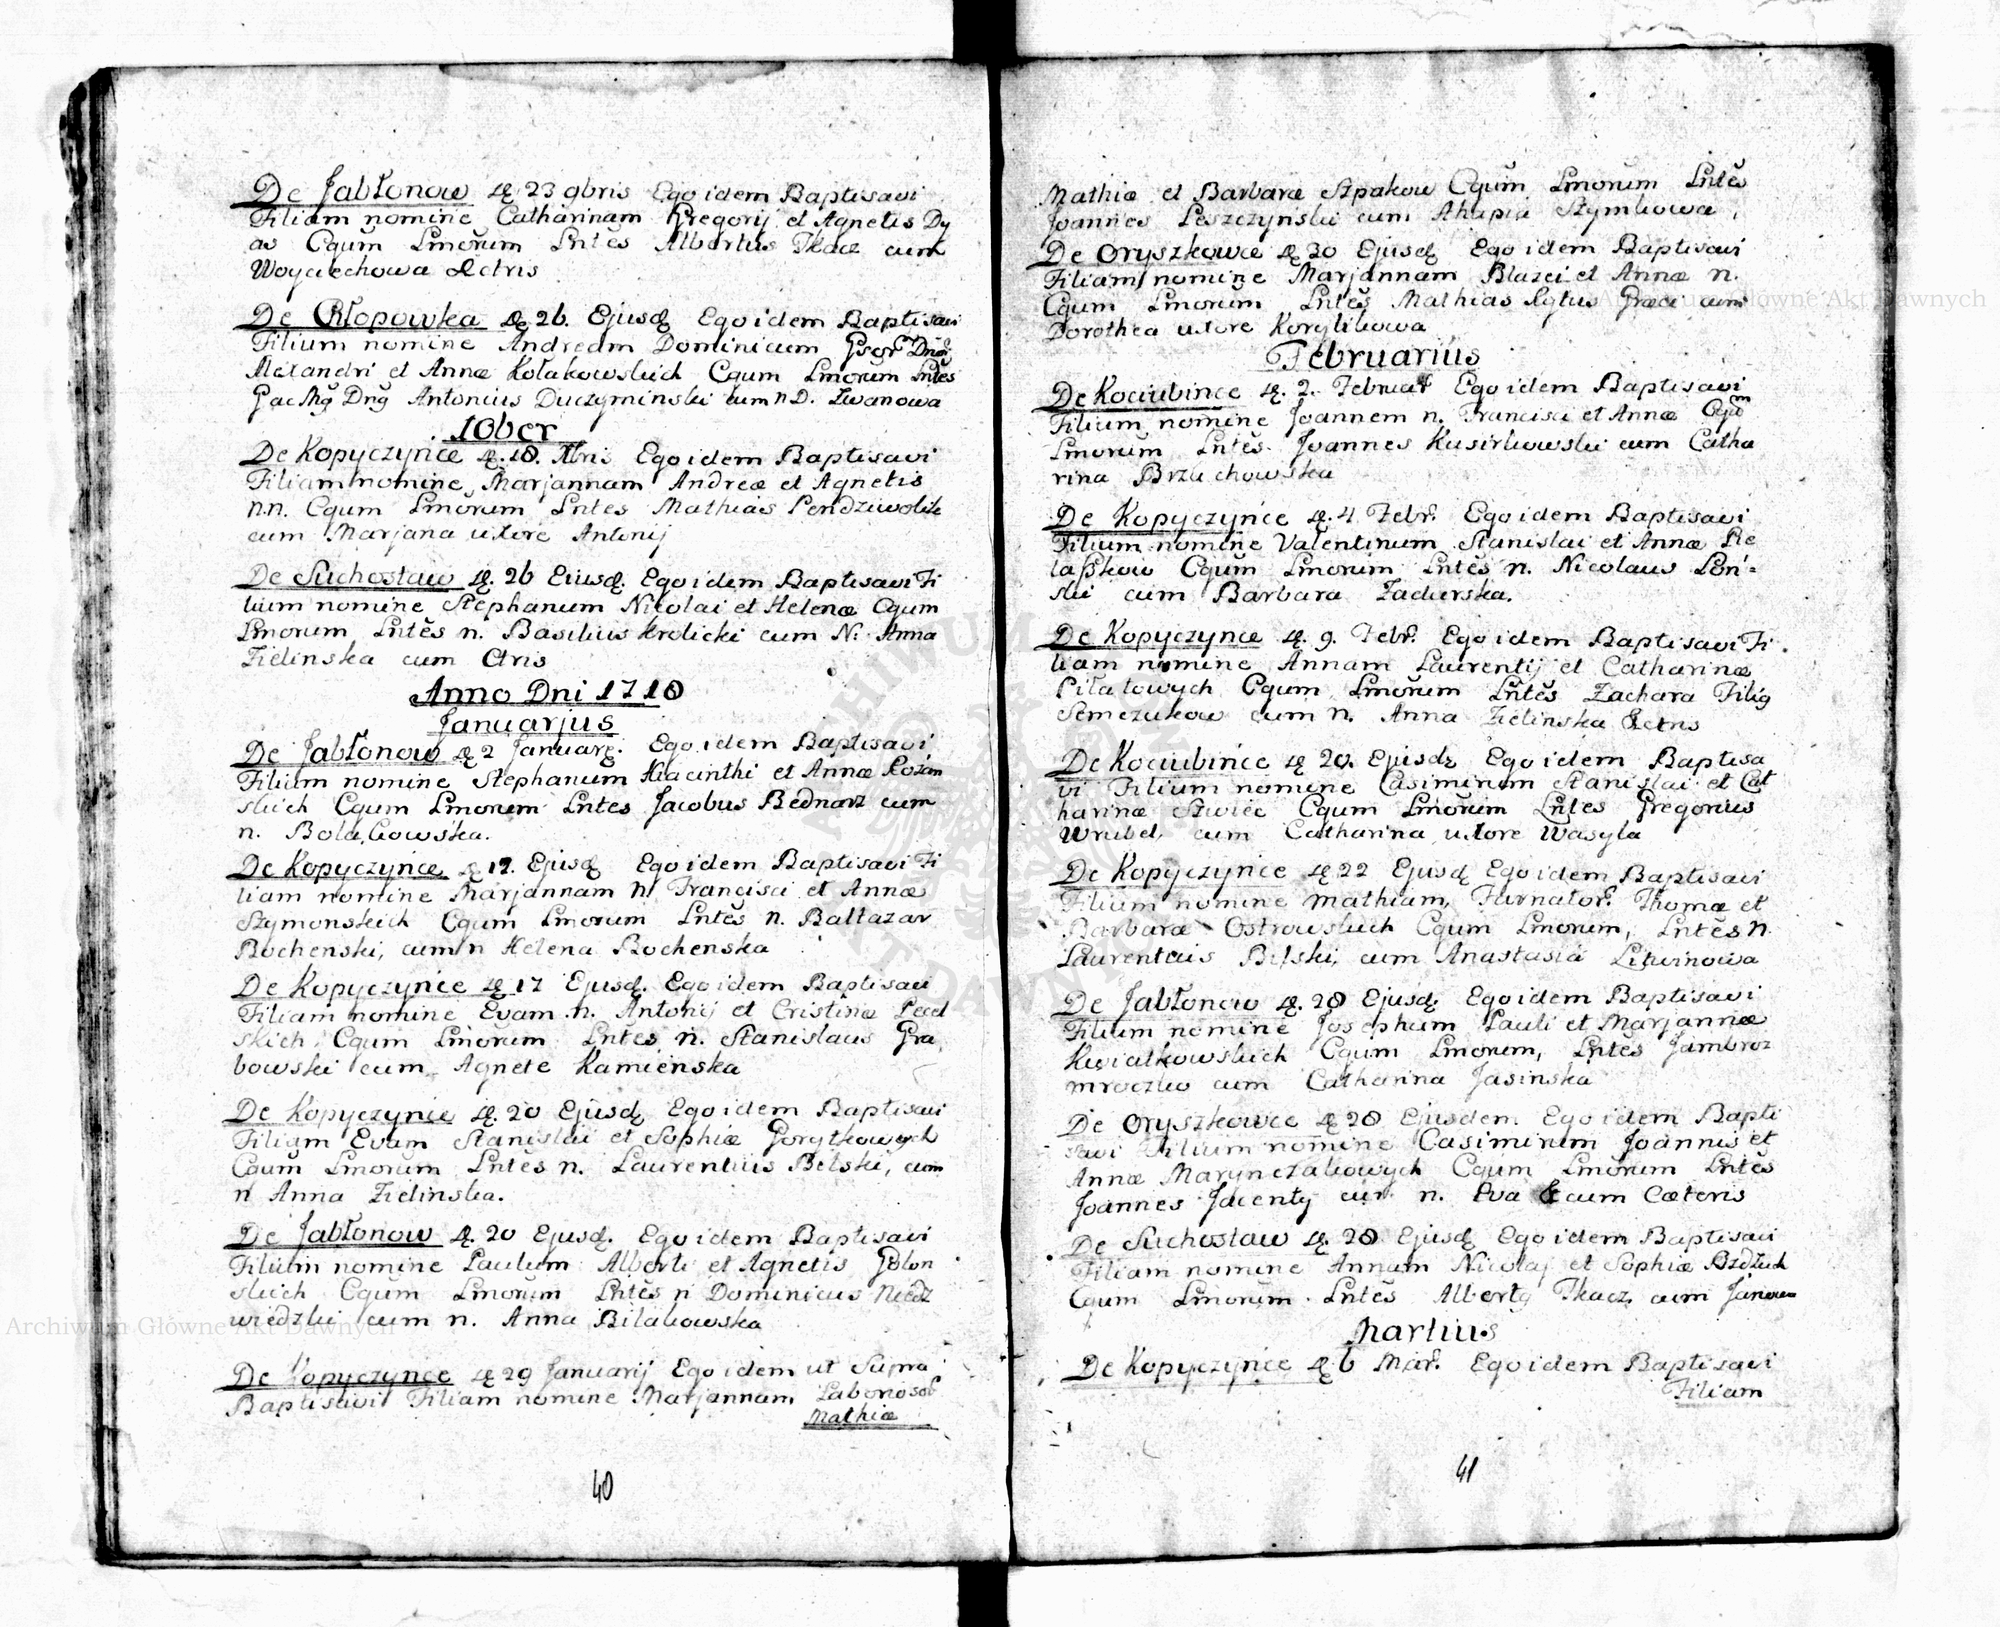 De Jabłonow d. 23 9bris Ego idem Baptisavi
Filiam nomine Catharinam Gregorij et Agnetis Dy
as Cgum Lmorum Lntes Albertus Tkacz cum
Woyciechowa &ctris
De Chłopowka d. 26. Ejusd Ego idem Baptisavi
Filium nomine Andream Dominicum
Alexandri et Annæ Kołakowskich Cgum Lmorum Lntes
Antonius Duczyminski cum n D. Iwanowa
10ber
De Kopyczynce d. 18. Xbris Ego idem Baptisavi
Filiam nomine Marjannam Andreæ et Agnetis
n.n. Cgum Lmorum Lntes Mathias Pendziwolk
cum Marjana uxore Antonij
De Suchostaw d. 26 Ejusd. Ego idem Baptisavi Fi
lium nomine Stephanum Nicolai et Helenæ Cgum
Lmorum Lntes n. Basilius Krolicki cum N. Anna
Zielinska cum Ctris
Anno Dni 1718
Januarjus
De Jabłonow d 2 Januarij. Ego idem Baptisavi
Filium nomine Stephanum Hiacinthi et Annæ Rozan
skich Cgum Lmorum Lntes Jacobus Bednarz cum
n. Bolachowska.
De Kopyczynce d 12. Ejusd Ego idem Baptisavi Fi
liam nomine Marjannam n. Francisci et Annæ
Szymonskich Cgum Lmorum Lntes n. Baltazar
Bochenski, cum n Helena Bochenska
De Kopyczynce d 17 Ejusd. Ego idem Baptisavi
Filiam nomine Evam n. Antonij et Cristinæ Pesel
skich Cgum Lmorum Lntes n. Stanislaus Gra
bowski cum Agnete Kamienska
De Kopyczynce d. 20 Ejusd Ego idem Baptisavi
Filiam Evam Stanislai et Sophiæ Gorytkowych
Cgum Lmorum Lntes n. Laurentius Belski, cum
n Anna Zielinska.
De Jabłonow d. 20 Ejusd. Ego idem Baptisavi
Filium nomine Paulum Alberti et Agnetis Golon
skich Cgum Lmorum Lntes n Dominicus Niedz
wiedzki cum n. Anna Bilakowska
De Kopyczynce d. 29 Januarij Ego idem ut Supra
Baptisavi Filiam nomine Marjannam Labonosos
Mathiæ
40
Mathiæ et Barbaræ Szpakow Cgum Lmorum Lntes
Joannes Leszczynski cum Ahapia Szymkowa,
De Oryszkowce d. 30 Ejusd Ego idem Baptisavi
Filiam nomine Marjannam Blazei et Annæ n.
Cgum Lmorum Lntes Mathias Rytus Græci cum
Dorothea uxore Korylikowa
Februarius
De Kociubince d. 2. Februar Ego idem Baptisavi
Filium nomine Joannem n. Francisci et Annæ Cgum
Lmorum Lntes. Joannes Kusirkowski cum Catha
rina Brzuchowska
De Kopyczynce d. 4 Febr. Ego idem Baptisavi
Filium nomine Valentinum Stanislai et Annæ Pie
laszkow Cgum Lmorum Lntes n. Nicolaus Lon-
ski cum Barbara Zadurska.
De Kopyczynce d. 9. Febr. Ego idem Baptisavi Fi
liam nomine Annam Laurentij et Catharinæ
Piłatowych Cgum Lmorum Lntes Zachara Filig
Semczukow cum n. Anna Zielinska &ctris
De Kociubince d 20. Ejusd Ego idem Baptisa
vi Filium nomine Casimirum Stanislai et Cat
harinæ Szwiec Cgum Lmorum Lntes Gregorius
Wrubel, cum Catharina uxore Wasyla
De Kopyczynce d 22 Ejusd Ego idem Baptisavi
Filium nomine Mathiam, Furnator. Thomæ et
Barbaræ Ostrowskich Cgum Lmorum, Lntes n.
Laurentius Bilski, cum Anastasia Litwinowa
De Jabłonow d. 28 Ejusd. Ego idem Baptisavi
Filium nomine Josephum Pauli et Marjannæ
Kwiatkowskich Cgum Lmorum, Lntes Jambroz
Mroczko cum Catharina Jasinska
De Oryszkowce d 28 Ejusdem Ego idem Bapti
savi Filium nomine Casimirum Joannis et
Annæ Marynczakowych Cgum Lmorum Lntes
Joannes Jacenty cum n. Eva & cum Cæteris
De Suchostaw d. 28 Ejusd Ego idem Baptisavi
Filiam nomine Annam Nicolaj et Sophiæ Bzdziuch
Cgum Lmorum Lntes Alberty Tkacz cum Janowa
Martius
De Kopyczynce d. 6 Mar. Ego idem Baptisavi
Filiam
41
Archiwum Główne Akt Dawnych
Archiwum Główne Akt Dawnych